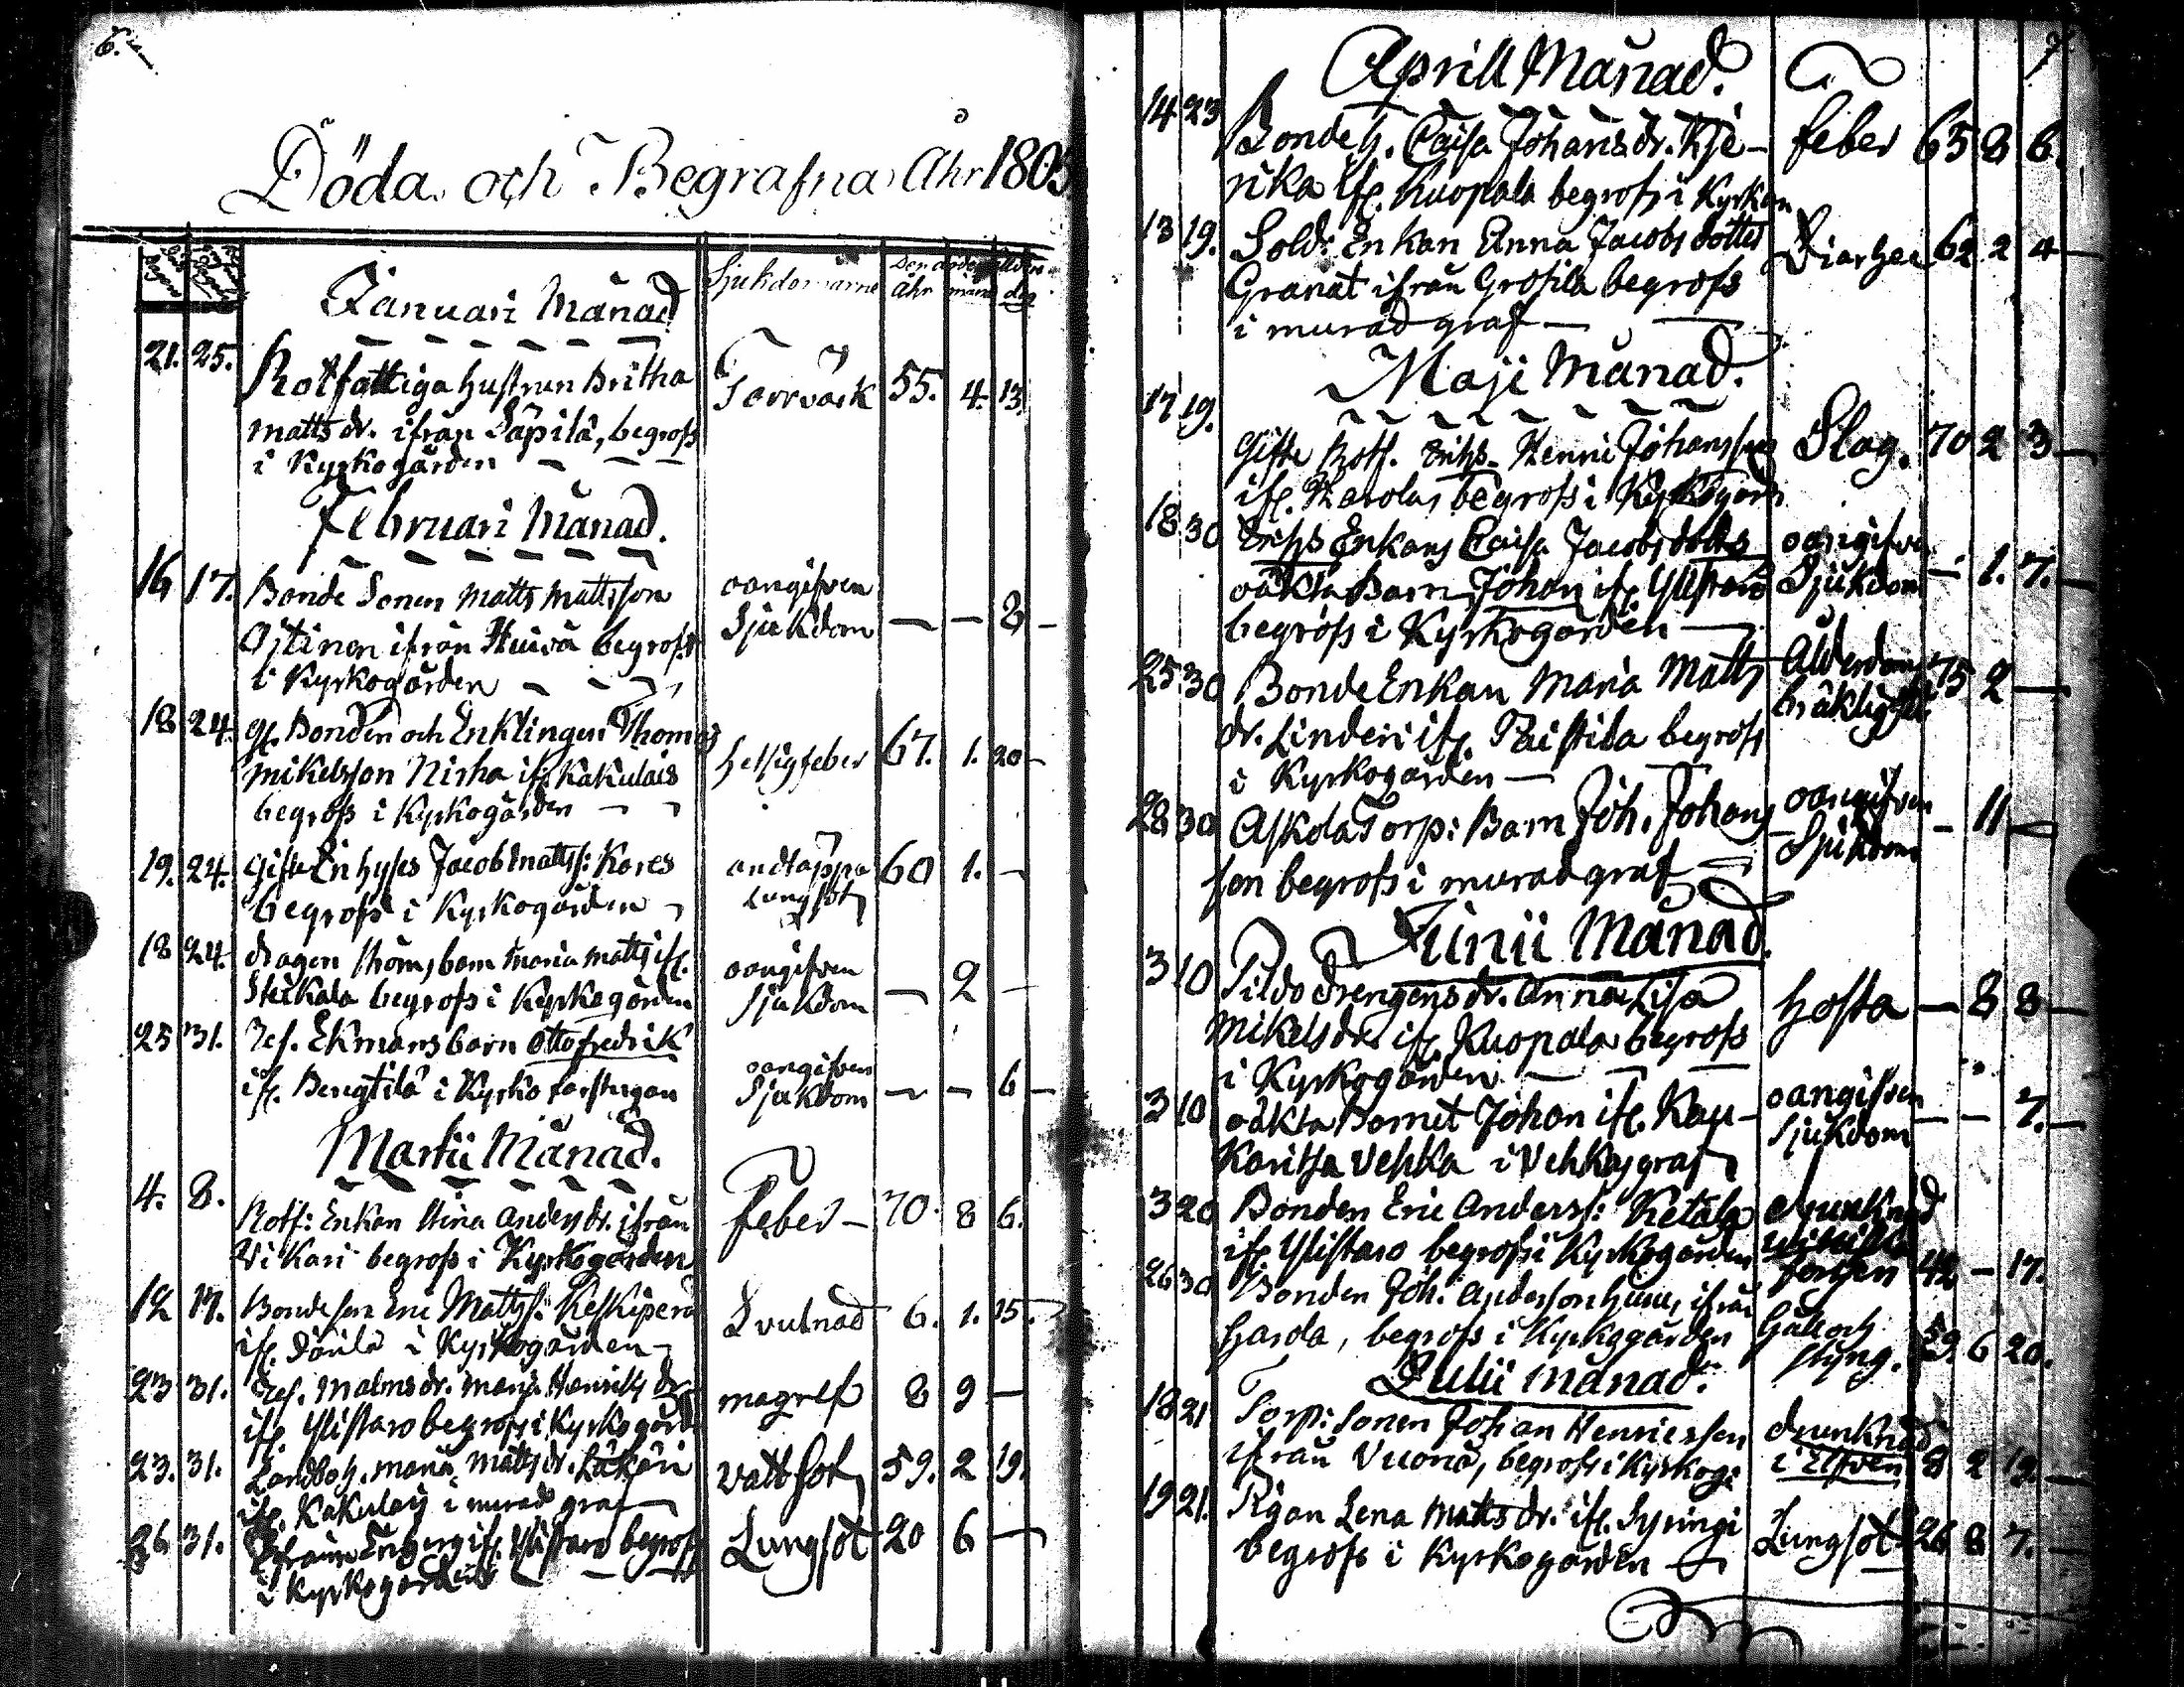 6.
Döda och Begrafna Åhr 1805
Januari Månad
Sjukdomarne
Åhr
21. 25. Rotfattiga hustrun Britha
Torrvärk 55. 4. 13
Matts dr. ifrån Säpilä, begrofs
i Kyrkogården
Februari Månad.
16 17. Bonde Sonen Matts Mattsson
oangifven
Sjukdom — — 8 —
Ojtinen ifrån Huivä begrofs
i Kyrkogården
18 24. gl. Bonden och Enklingen Thomas
Mikelsson Nirha ifr. Kakulais
hetsigfeber 67. 1. 20
begrofs i Kyrkogården
19. 24. gifte Inhyses Jacob Matts: Kares
andtäppa 60 1. —
begrofs i Kyrkogården
Lungsot
18 24. dragon Thoms barn Maria Matts ifr.
oangifven
Sjukdom — 2 —
begrofs i Kyrkogården
25 31. Ref. Ekmans barn Otto fredrik
oangifven
Sjukdom — — 6 —
ifr. Bengtilä i Kyrko
Martii Månad.
4. 8. Rotf: Enkan Stina Anders dr. ifrån
feber — 70. 8 6.
Vikari begrofs i Kyrkogården
12 17. Bonde son Eric Matts:
Svulnad 6. 1. 15.
i Kyrkogården
23 31. Ref. Malms dr. Maria Henriks dr
magref 8 9 —
ifr. Ylistaro begrofs i Kyrkogård
23. 31. Landbo h. Maria Matts dr.
Vattsot 59. 2 19.
ifr. Kakulais i murad graf
26 31. Ylistaro begrofs
Lungsot 20 6 —
i Kyrkogården
7
Aprill Månad.
14 23 Bonde h. Caisa Johans dr. Kje-
feber 65 8 6.
rika ifr. Kuopala begrofs i Kyrkan
13 19. Sold: Enkan Anna Jacobs dotter
Diarhee 62 2 4
Granat ifrån Grosila begrofs
i murad graf
Maji Månad.
17 19. Gifte Rotf. Johansson
Slag. 70 2 3
ifr. Karolas begrofs i Kyrkogård
18 30 Enkans Caisa Jacobs dotters
oangifven
Sjukdom — 1. 7.
oäkta Barn Johan ifr. Ylistaro
begrofs i Kyrkogården
25. 30 Bonde Enkan Maria Matts
Ålderdoms 75 2 —
bräklighet
dr. Linderi ifr. Paistila begrofs
i Kyrkogården
28 30 Askola Torp: Barn Joh. Johans
oangifven
Sjukdom — 11 —
son begrofs i murad graf
Junii Månad.
3 10 Pildo Drengens dr. Anna Lisa
hosta — 8 8 —
Mikels dr. ifr. Kuopala begrofs
i Kyrkogården
3 10 oäkta Barnet Johan ifr. Kau-
oangifven
Sjukdom — — 7.
karitsa Vehka i Vehkas graf
3 20 Bonden Eric Anderss: Ketala
drunknad
ifr. Ylistaro begrofs i Kyrkogården
forsen 42 — 17.
26 30 Bonden Joh: Andersson ifrån
Håll och
styng. 59. 6 20.
Harola, begrofs i Kyrkogården
Julii månad.
18 21 Torp: Sonen Johan Henricsson
drunknad
i Elfven 8 2 12
ifrån Vuona, begrofs i Kyrkog:
19 21. Pigan Lena Matts dr. ifr. Syringi
Lungsot 26 8 7.
begrofs i Kyrkogården